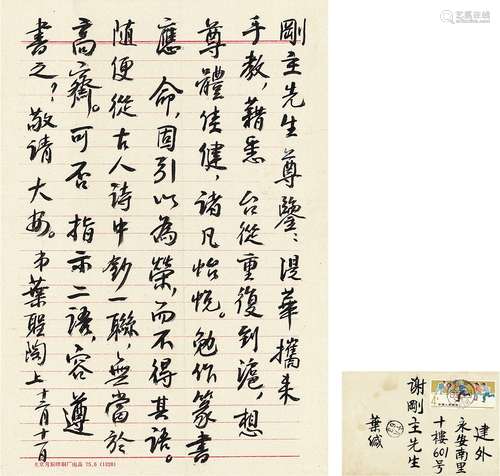 剛主先生尊鑒：湜華攜来
手教，藉悉 台從重復到滬，想
尊體佳健，諸凡怡悦。勉作篆書
應 命，固引以為榮，而不得其語。
随便從古人詩中鈔一聯，無當於
高齋。可否 指示二語，容遵
書之？敬請 大安。弟葉聖陶上
75.6 (1028)
建外
永安南里
十樓601号
謝剛主先生
葉緘